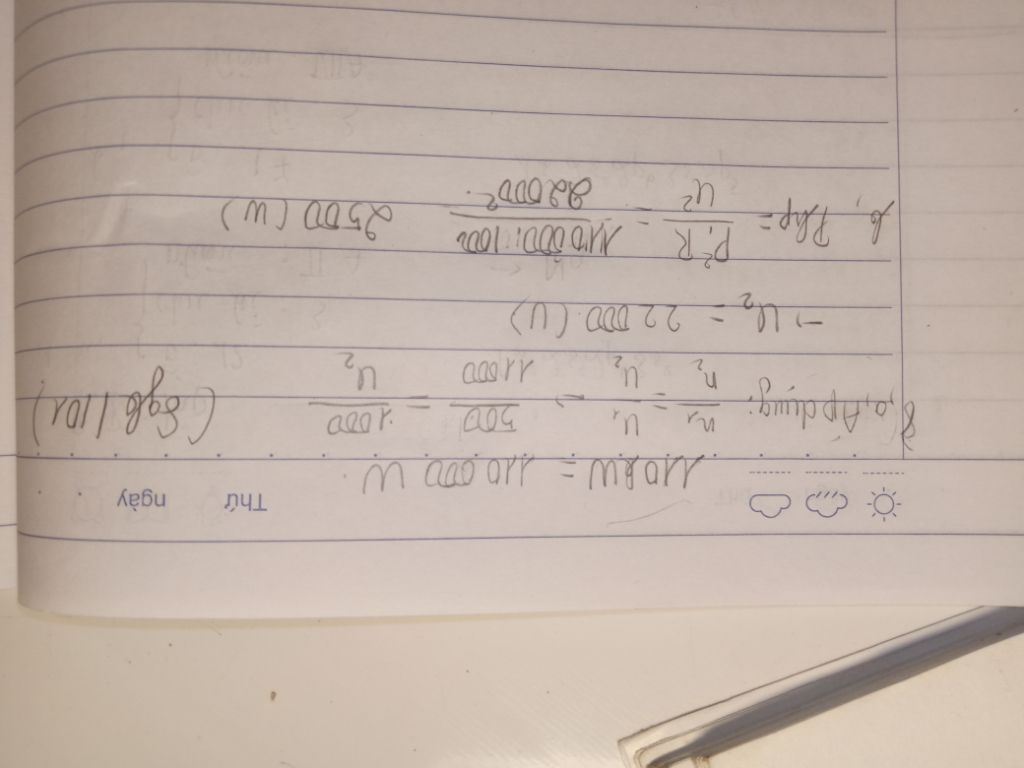 Thứ ngày
110 kW = 110 000 W
8, a, Áp dụng: n₁/n₂ = U₁/U₂ → 500/11000 = 1000/U₂ (Sgk/101)
→ U₂ = 22 000 (V)
b, P hp = P².R/U² = 110 000².100/22 000² 2500 (W)